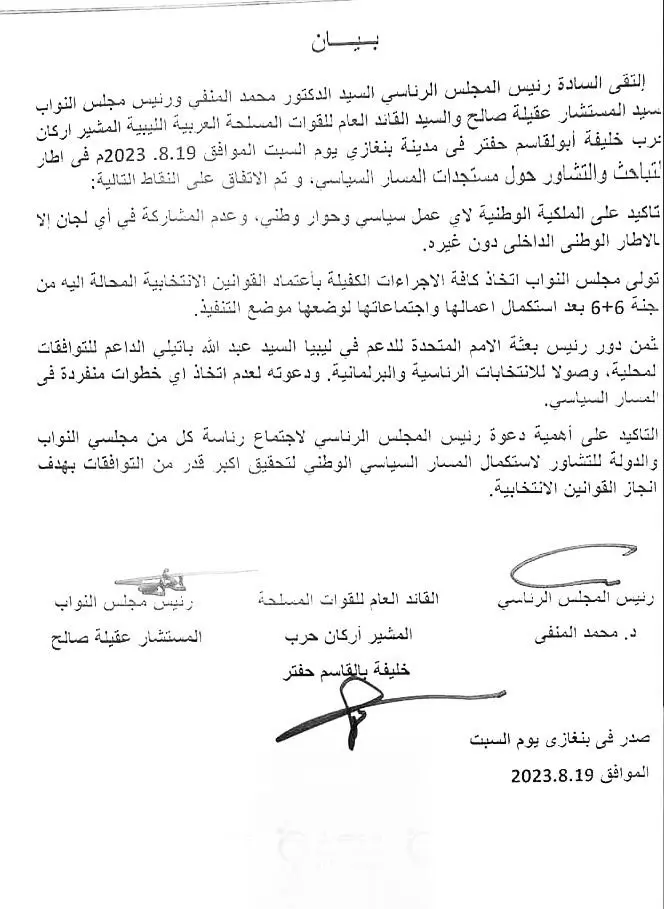 بـيـــــان
إلتقى السادة رئيس المجلس الرئاسي السيد الدكتور محمد المنفي ورئيس مجلس النواب
سيد المستشار عقيلة صالح والسيد القائد العام للقوات المسلحة العربية الليبية المشير اركان
رب خليفة أبولقاسم حفتر فى مدينة بنغازي يوم السبت الموافق 8.19. 2023م فى اطار
لتباحث والتشاور حول مستجدات المسار السياسي، و تم الاتفاق على النقاط التالية:
تاكيد على الملكية الوطنية لاي عمل سياسي وحوار وطني، وعدم المشاركة في أي لجان إلا
الاطار الوطنى الداخلى دون غيره.
تولى مجلس النواب اتخاذ كافة الاجراءات الكفيلة بأعتماد القوانين الانتخابية المحالة اليه من
جنة 6+6 بعد استكمال اعمالها واجتماعاتها لوضعها موضع التنفيذ.
ثمن دور رئيس بعثة الامم المتحدة للدعم في ليبيا السيد عبد الله باتيلي الداعم للتوافقات
لمحلية، وصولا للانتخابات الرئاسية والبرلمانية. ودعوته لعدم اتخاذ اي خطوات منفردة فى
المسار السياسي.
التاكيد على أهمية دعوة رئيس المجلس الرئاسي لاجتماع رئاسة كل من مجلسي النواب
والدولة للتشاور لاستكمال المسار السياسي الوطني لتحقيق اكبر قدر من التوافقات بهدف
انجاز القوانين الانتخابية.
رئيس المجلس الرئاسي القائد العام للقوات المسلحة رئيس مجلس النواب
د. محمد المنفى المشير أركان حرب المستشار عقيلة صالح
خليفة بالقاسم حفتر
صدر فى بنغازى يوم السبت
الموافق 2023.8.19